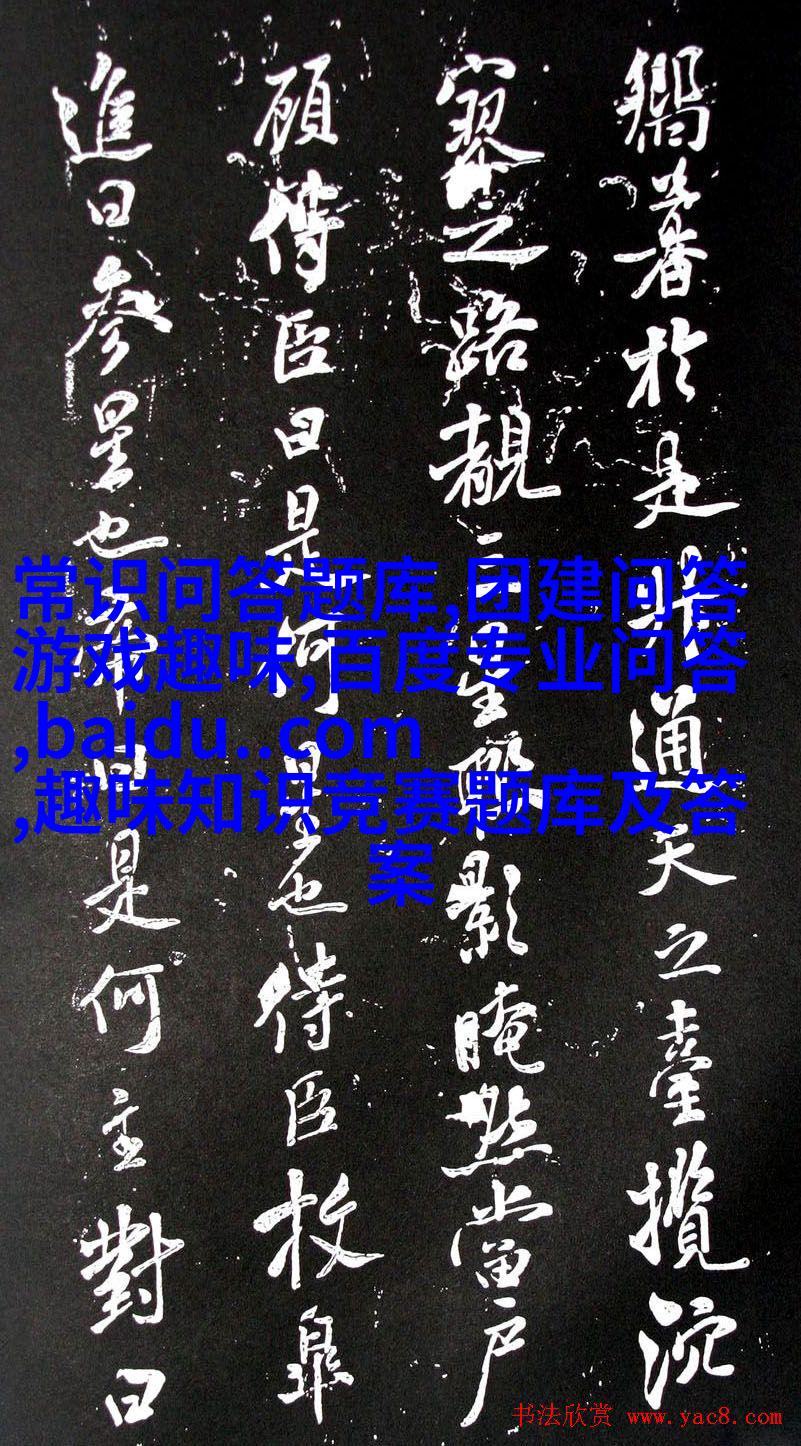 嚮暮於是通天之臺攬沆
寥之路覩三星影晻然當戶
顧侍臣曰是何星也侍臣枚皋
進曰參星也帝曰是何主對曰
常识问答题库,团建问答
游戏趣味,百度专业问答
,baidu..com
,趣味知识竞赛题库及答
案
书法欣赏 www.yac8.com